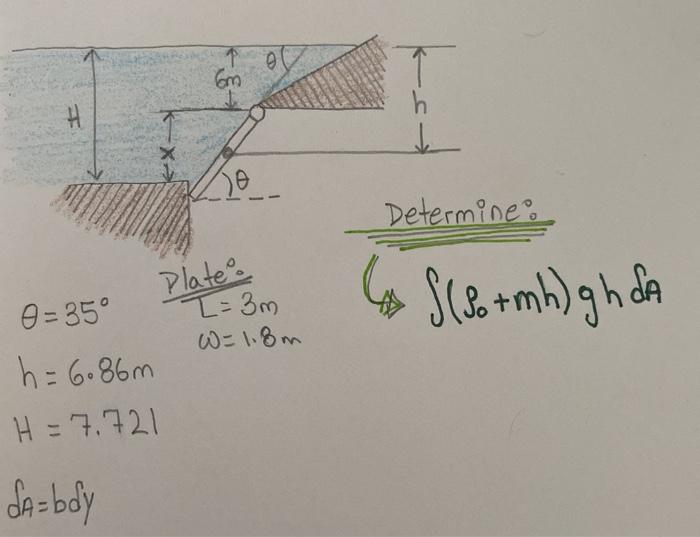 6m
θ
H
h
x
θ
Determine:
∫(ρ₀+mh) g h dA
Plate:
L = 3m
ω = 1.8m
θ = 35°
h = 6.86m
H = 7.721
dA = bdy